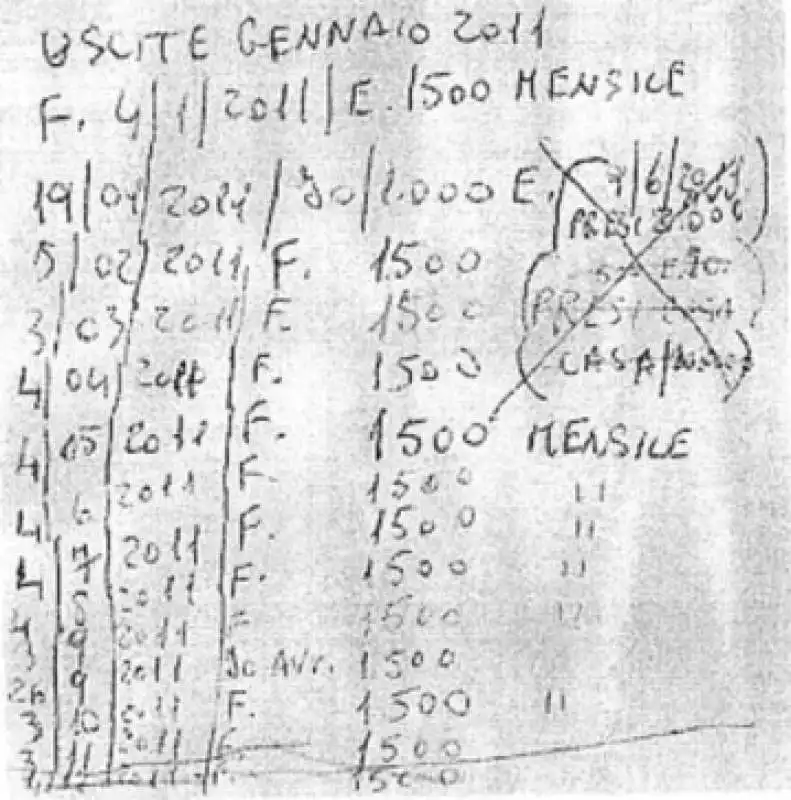 USCITE GENNAIO 2011
F. 4/1/2011/E. 1500 MENSILE
19/01/2011/Io/1.000 E. (7/6/2011
PRESI 3.000)
5/02/2011, F. 1500
3/03/2011/F. 1500 (PRESI
4/04/2011/F. 1500 (CASA/
4/05/2011/F. 1500 MENSILE
4/6/2011/F. 1500 "
4/7/2011/F. 1500 "
4/8/2011/F. 1500 "
9/2011 F. 1500 "
26/9/2011 Io AVV. 1500
3/10/2011 F. 1500 "
3/11/2011 F. 1500
2011 F. 1500